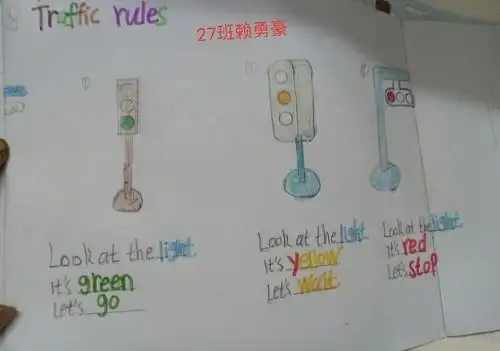 Traffic rules
27班赖勇豪
Look at the light
It's green
Let's go
Look at the light
It's yellow
Let's wait
Look at the light
It's red
Let's stop